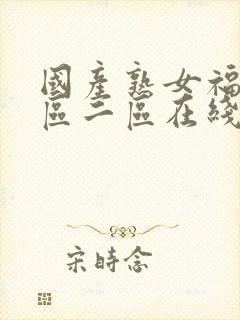 國產熟女福
區二區在綫
宋時念